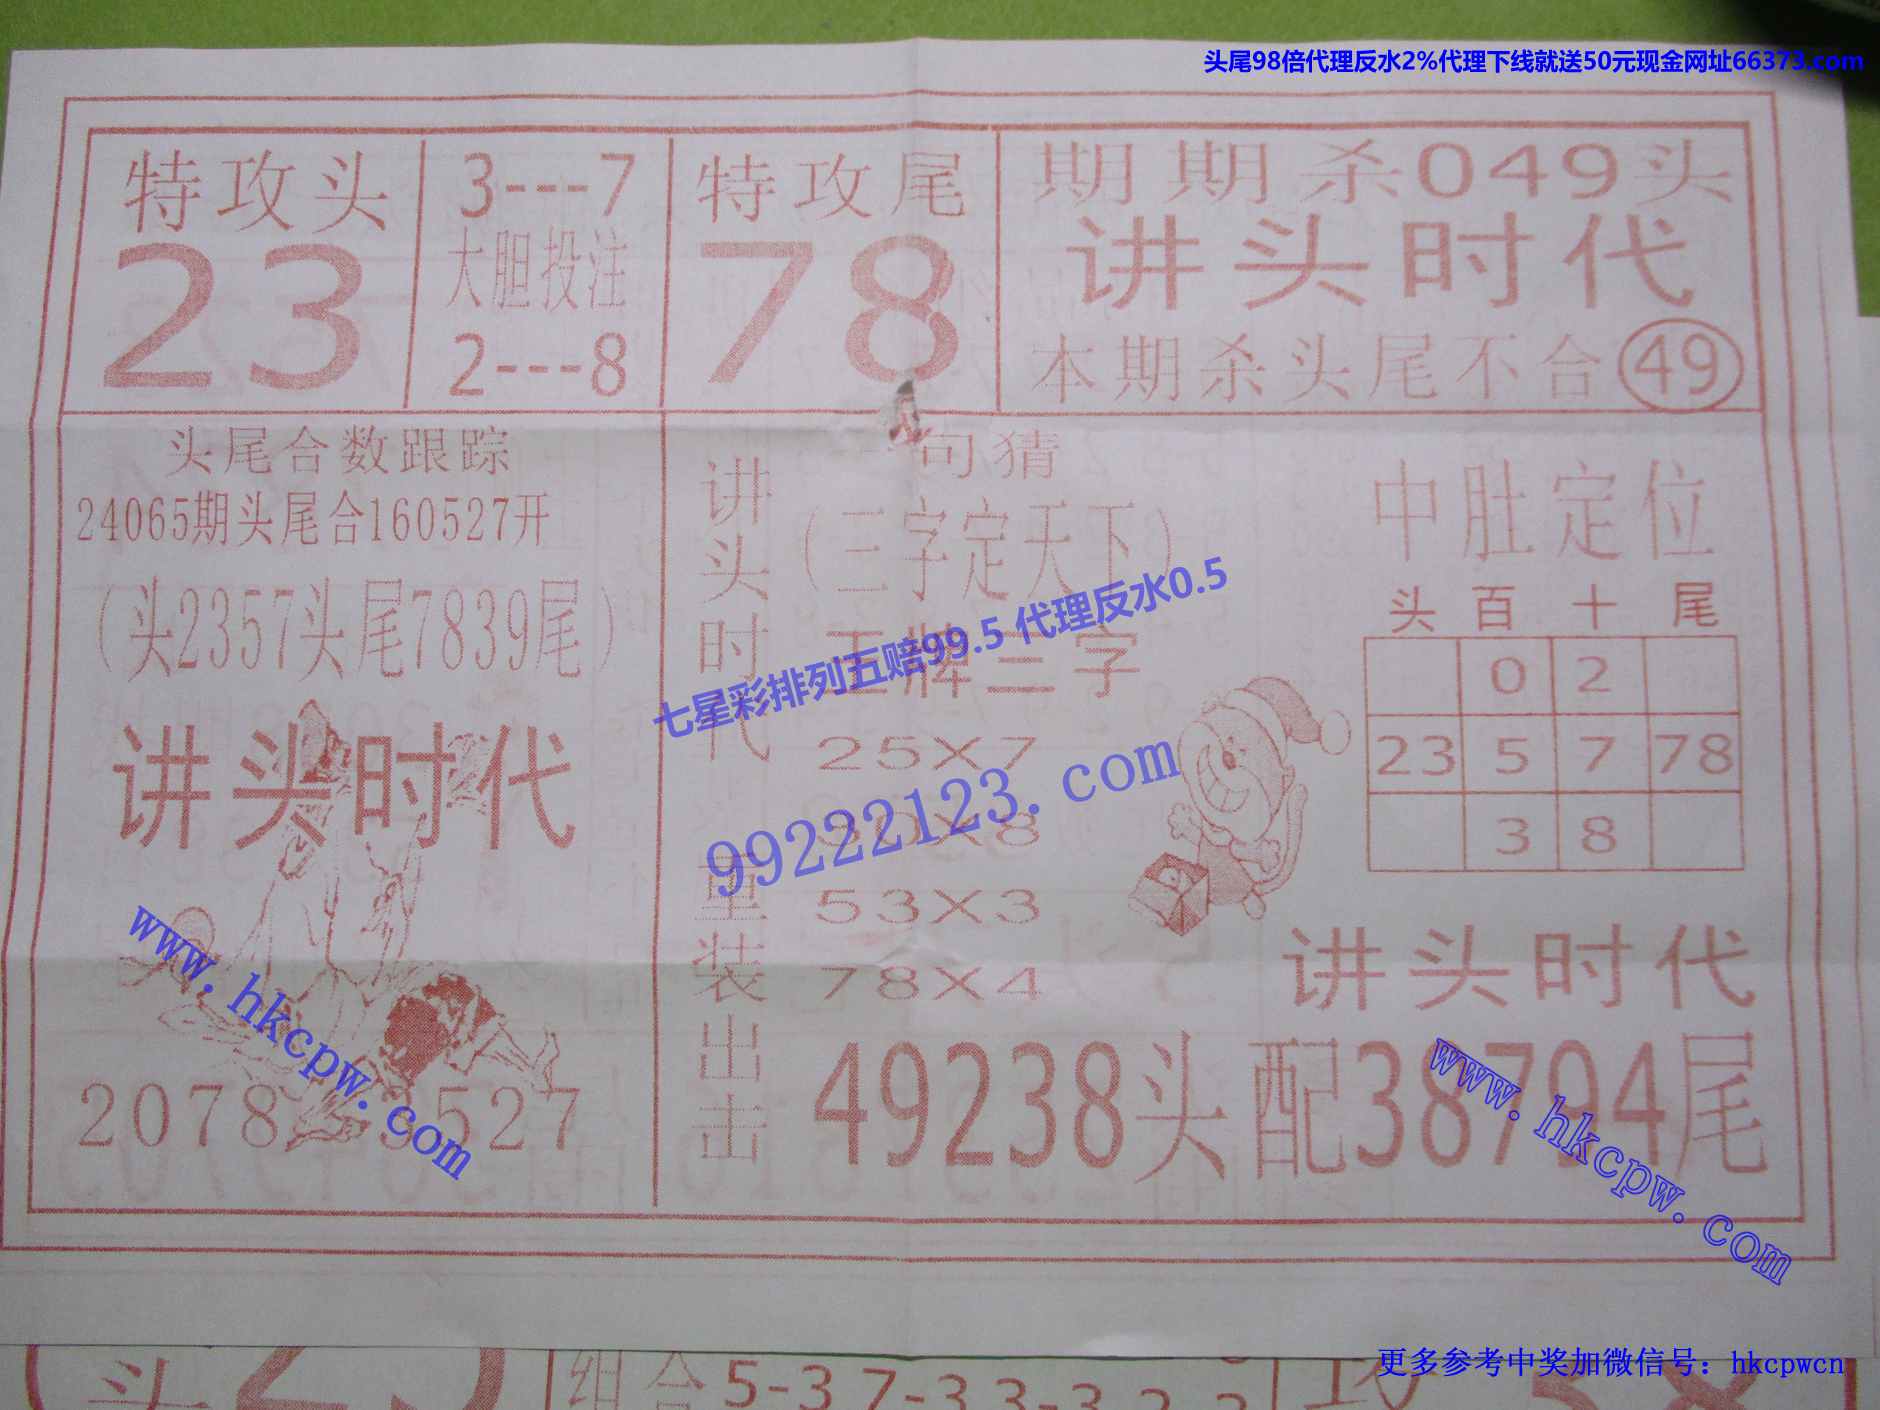 头尾98倍代理反水2%代理下线就送50元现金网址66373.com
特攻头
23
3---7
大胆投注
2---8
特攻尾
78
期期杀049头
讲头时代
本期杀头尾不合49
头尾合数跟踪
24065期头尾合160527开
（头2357头尾7839尾）
讲头时代
2078
527
讲头时代
重装出击
句猜
（三字定天下）
王牌三字
25X7
X8
53X3
78X4
中肚定位
头 百 十 尾
0 2
23 5 7 78
3 8
讲头时代
49238头配38794尾
七星彩排列五赔99.5 代理反水0.5
99222123.com
www.hkcpw.com
www.hkcpw.com
更多参考中奖加微信号：hkcpwcn
头
组合5-37-33-3